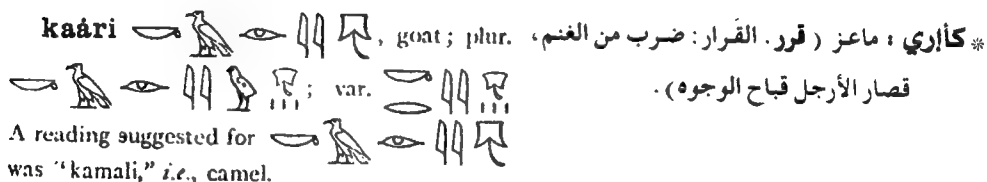 kaȧri , goat; plur.
; var.
A reading suggested for
was "kamali," i.e., camel.
* كأإري : ماعز ( قرر. القَرار: ضرب من الغنم،
قصار الأرجل قباح الوجوه) .